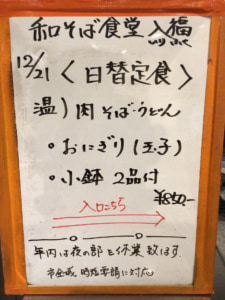 和そば食堂 入福
12/21 〈日替定食〉
温)肉そば・うどん
・おにぎり(玉子)
・小鉢 2品付
¥850-
入口こちら
年内は夜の部を休業致します
市全域 時短要請に対応